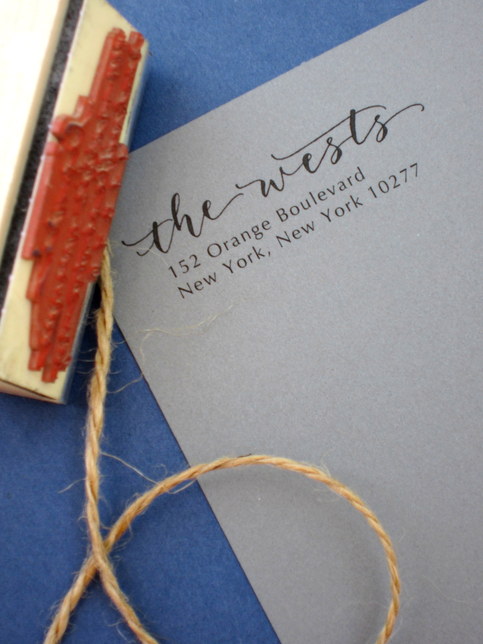 the wests
152 Orange Boulevard
New York, New York 10277